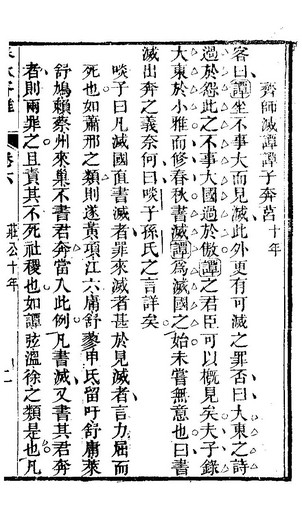 齊師滅譚譚子奔莒十年
客曰譚坐不事大而見滅此外更有可滅之罪否曰大東之詩
過於怨此之不事大國過於傲譚之君臣可以概見矣夫子錄
大東於小雅而修春秋書滅譚為滅國之始未嘗無意也曰書
滅出奔之義奈何曰啖子孫氏之言詳矣
啖子曰凡滅國直書滅者罪來滅者甚於見滅者言力屈而
死也如蕭邢之類則遂黃項江六庸舒蓼甲氏留吁舒庸萊
舒鳩賴蔡州來巢不書君奔當入此例凡書滅又書其君奔
者則兩罪之且責其不死社稷也如譚弦溫徐之類是也凡
卷六
莊公十年